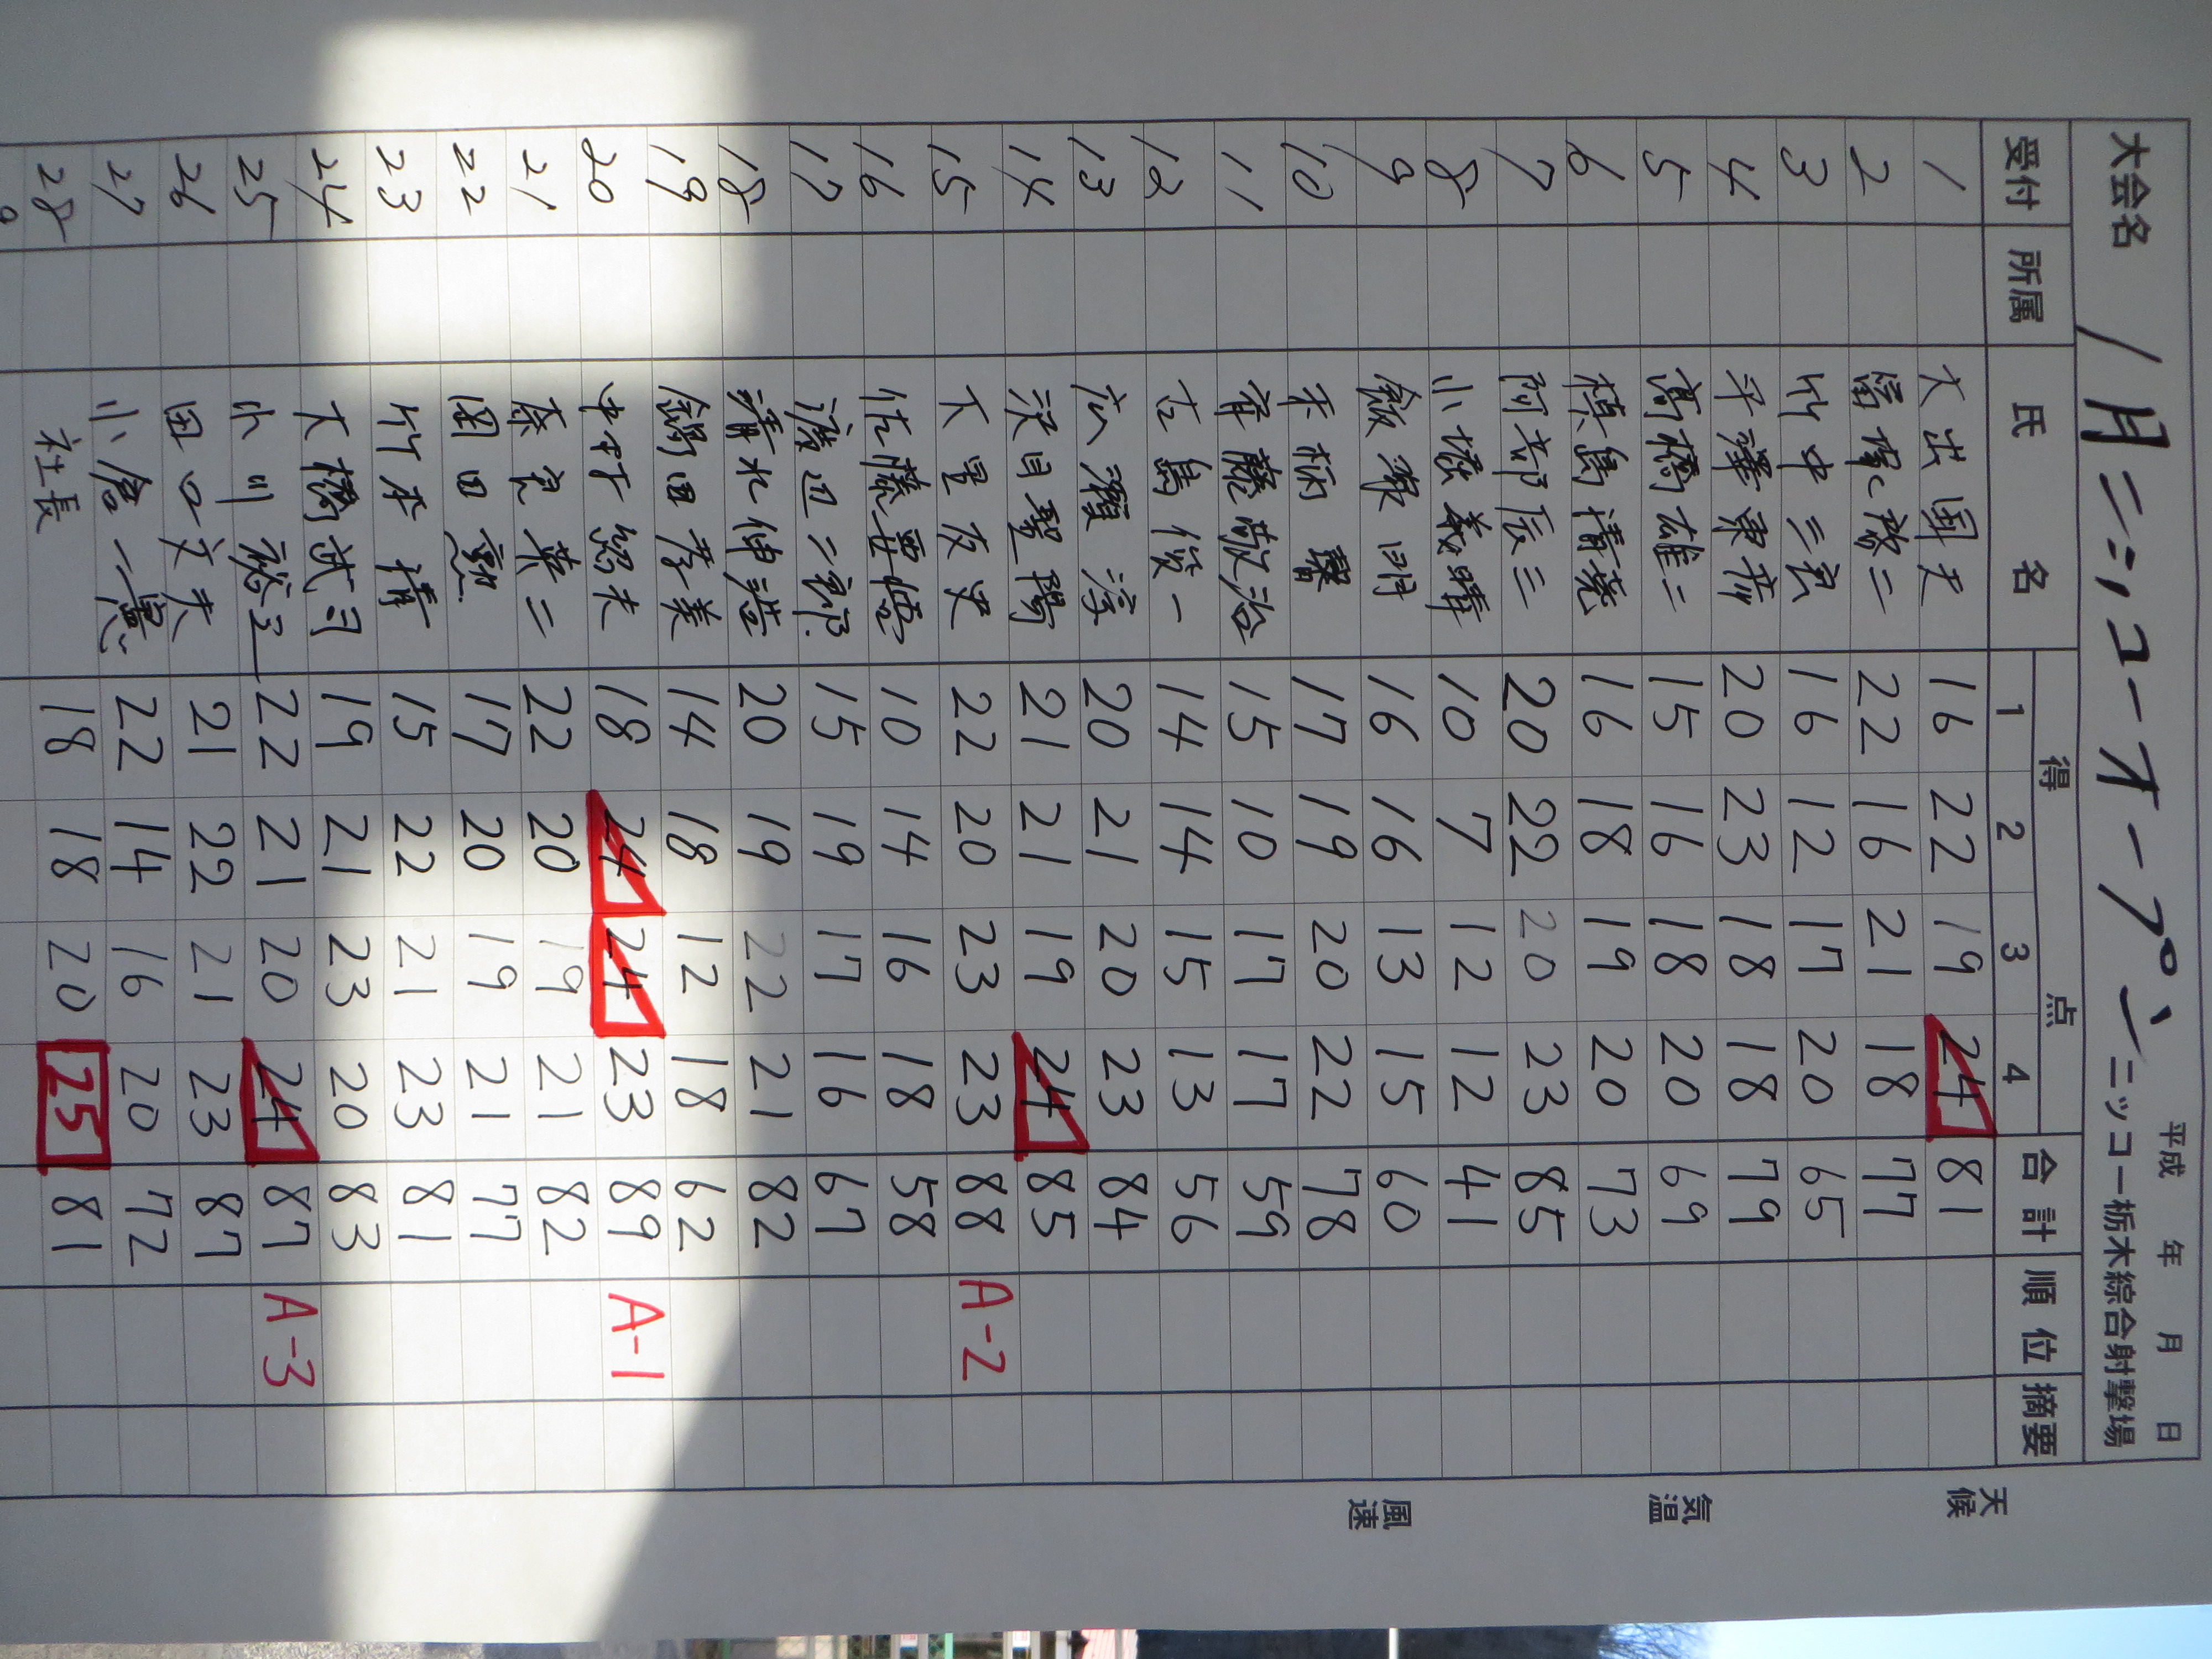 大会名 1月ニッコーオープン 平成 年 月 日
ニッコー栃木綜合射撃場
受付 所属 氏名 得点 合計 順位 摘要
1 2 3 4
1 大出国夫 16 22 19 24 81
2 二 22 16 21 18 77
3 竹中三 16 12 17 20 65
4 平澤 20 23 18 18 79
5 高橋雄二 15 16 18 20 69
6 槙島清 16 18 19 20 73
7 阿部辰三 20 22 20 23 85
8 小堀義晴 10 7 12 12 41
9 飯塚明 16 16 13 15 60
10 17 19 20 22 78
11 斉藤敬治 15 10 17 17 59
12 古島俊一 14 14 15 13 56
13 広瀬淳 20 21 20 23 84
14 21 21 19 24 85
15 大里友史 22 20 23 23 88 A-2
16 佐藤 10 14 16 18 58
17 渡辺二郎 15 19 17 16 67
18 清水伸浩 20 19 22 21 82
19 田孝美 14 18 12 18 62
20 中村昭夫 18 24 24 23 89 A-1
21 奈良英二 22 20 19 21 82
22 園田勲 17 20 19 21 77
23 竹本清 15 22 21 23 81
24 大橋武司 19 21 23 20 83
25 小川 22 21 20 24 87 A-3
26 田口文夫 21 22 21 23 87
27 小倉一憲 22 14 16 20 72
28 社長 18 18 20 25 81
天候
気温
風速